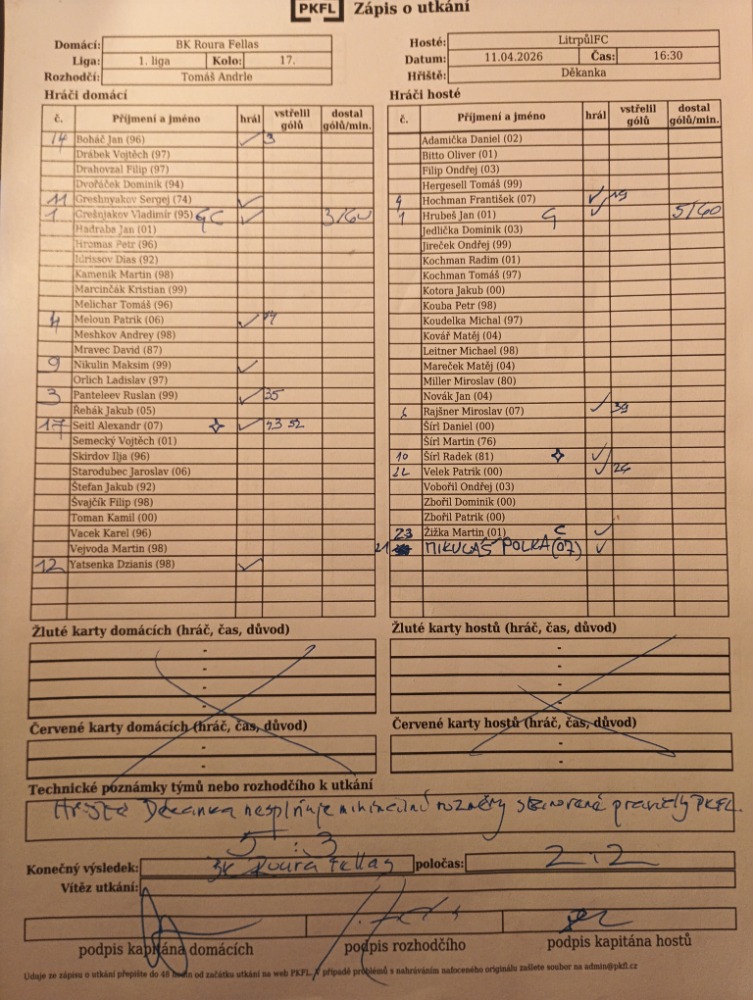 PKFL Zápis o utkání
Domácí: BK Roura Fellas
Liga: 1. liga Kolo: 17.
Rozhodčí: Tomáš Andrle
Hosté: LitrpůlFC
Datum: 11.04.2026 Čas: 16:30
Hřiště: Děkanka
Hráči domácí
č. Příjmení a jméno hrál vstřelil gólů dostal gólů/min.
14 Boháč Jan (96) ✓ 3
Drábek Vojtěch (97)
Drahovzal Filip (97)
Dvořáček Dominik (94)
11 Greshnyakov Sergej (74) ✓
1 Grešnjakov Vladimír (95) GC ✓ 3/60
Hadraba Jan (01)
Hromas Petr (96)
Idrissov Dias (92)
Kameník Martin (98)
Marcinčák Kristian (99)
Melichar Tomáš (96)
4 Meloun Patrik (06) ✓
Meshkov Andrey (98)
Mravec David (87)
9 Nikulin Maksim (99) ✓
Orlich Ladislav (97)
3 Panteleev Ruslan (99) ✓ 35
Řehák Jakub (05)
17 Seitl Alexandr (07) ✓ 52
Semecký Vojtěch (01)
Skirdov Ilja (96)
Starodubec Jaroslav (06)
Štefan Jakub (92)
Švajčík Filip (98)
Toman Kamil (00)
Vacek Karel (96)
Vejvoda Martin (98)
12 Yatsenka Dzianis (98) ✓
Hráči hosté
č. Příjmení a jméno hrál vstřelil gólů dostal gólů/min.
Adamička Daniel (02)
Bitto Oliver (01)
Filip Ondřej (03)
Hergesell Tomáš (99)
Hochman František (07) ✓
1 Hrubeš Jan (01) G ✓ 5/60
Jedlička Dominik (03)
Jireček Ondřej (99)
Kochman Radim (01)
Kochman Tomáš (97)
Kotora Jakub (00)
Kouba Petr (98)
Koudelka Michal (97)
Kovář Matěj (04)
Leitner Michael (98)
Mareček Matěj (04)
Miller Miroslav (80)
Novák Jan (04)
6 Rajšner Miroslav (07) ✓ 39
Šírl Daniel (00)
Šírl Martin (76)
10 Šírl Radek (81) ✓
Velek Patrik (00) ✓ 26
Vobořil Ondřej (03)
Zbořil Dominik (00)
Zbořil Patrik (00)
23 Žižka Martin (01) C ✓
21 MIKULÁŠ POLKA (07) ✓
Žluté karty domácích (hráč, čas, důvod)
Červené karty domácích (hráč, čas, důvod)
Žluté karty hostů (hráč, čas, důvod)
Červené karty hostů (hráč, čas, důvod)
Technické poznámky týmů nebo rozhodčího k utkání
Hřiště Děkanka nesplňuje minimální rozměry stanovené pravidly PKFL.
Konečný výsledek: 5:3 poločas: 2:2
Vítěz utkání: BK Roura Fellas
podpis kapitána domácích podpis rozhodčího podpis kapitána hostů
Údaje ze zápisu o utkání přepište do 48 hodin od začátku utkání na web PKFL. V případě problémů s nahráváním nafoceného originálu zašlete soubor na admin@pkfl.cz